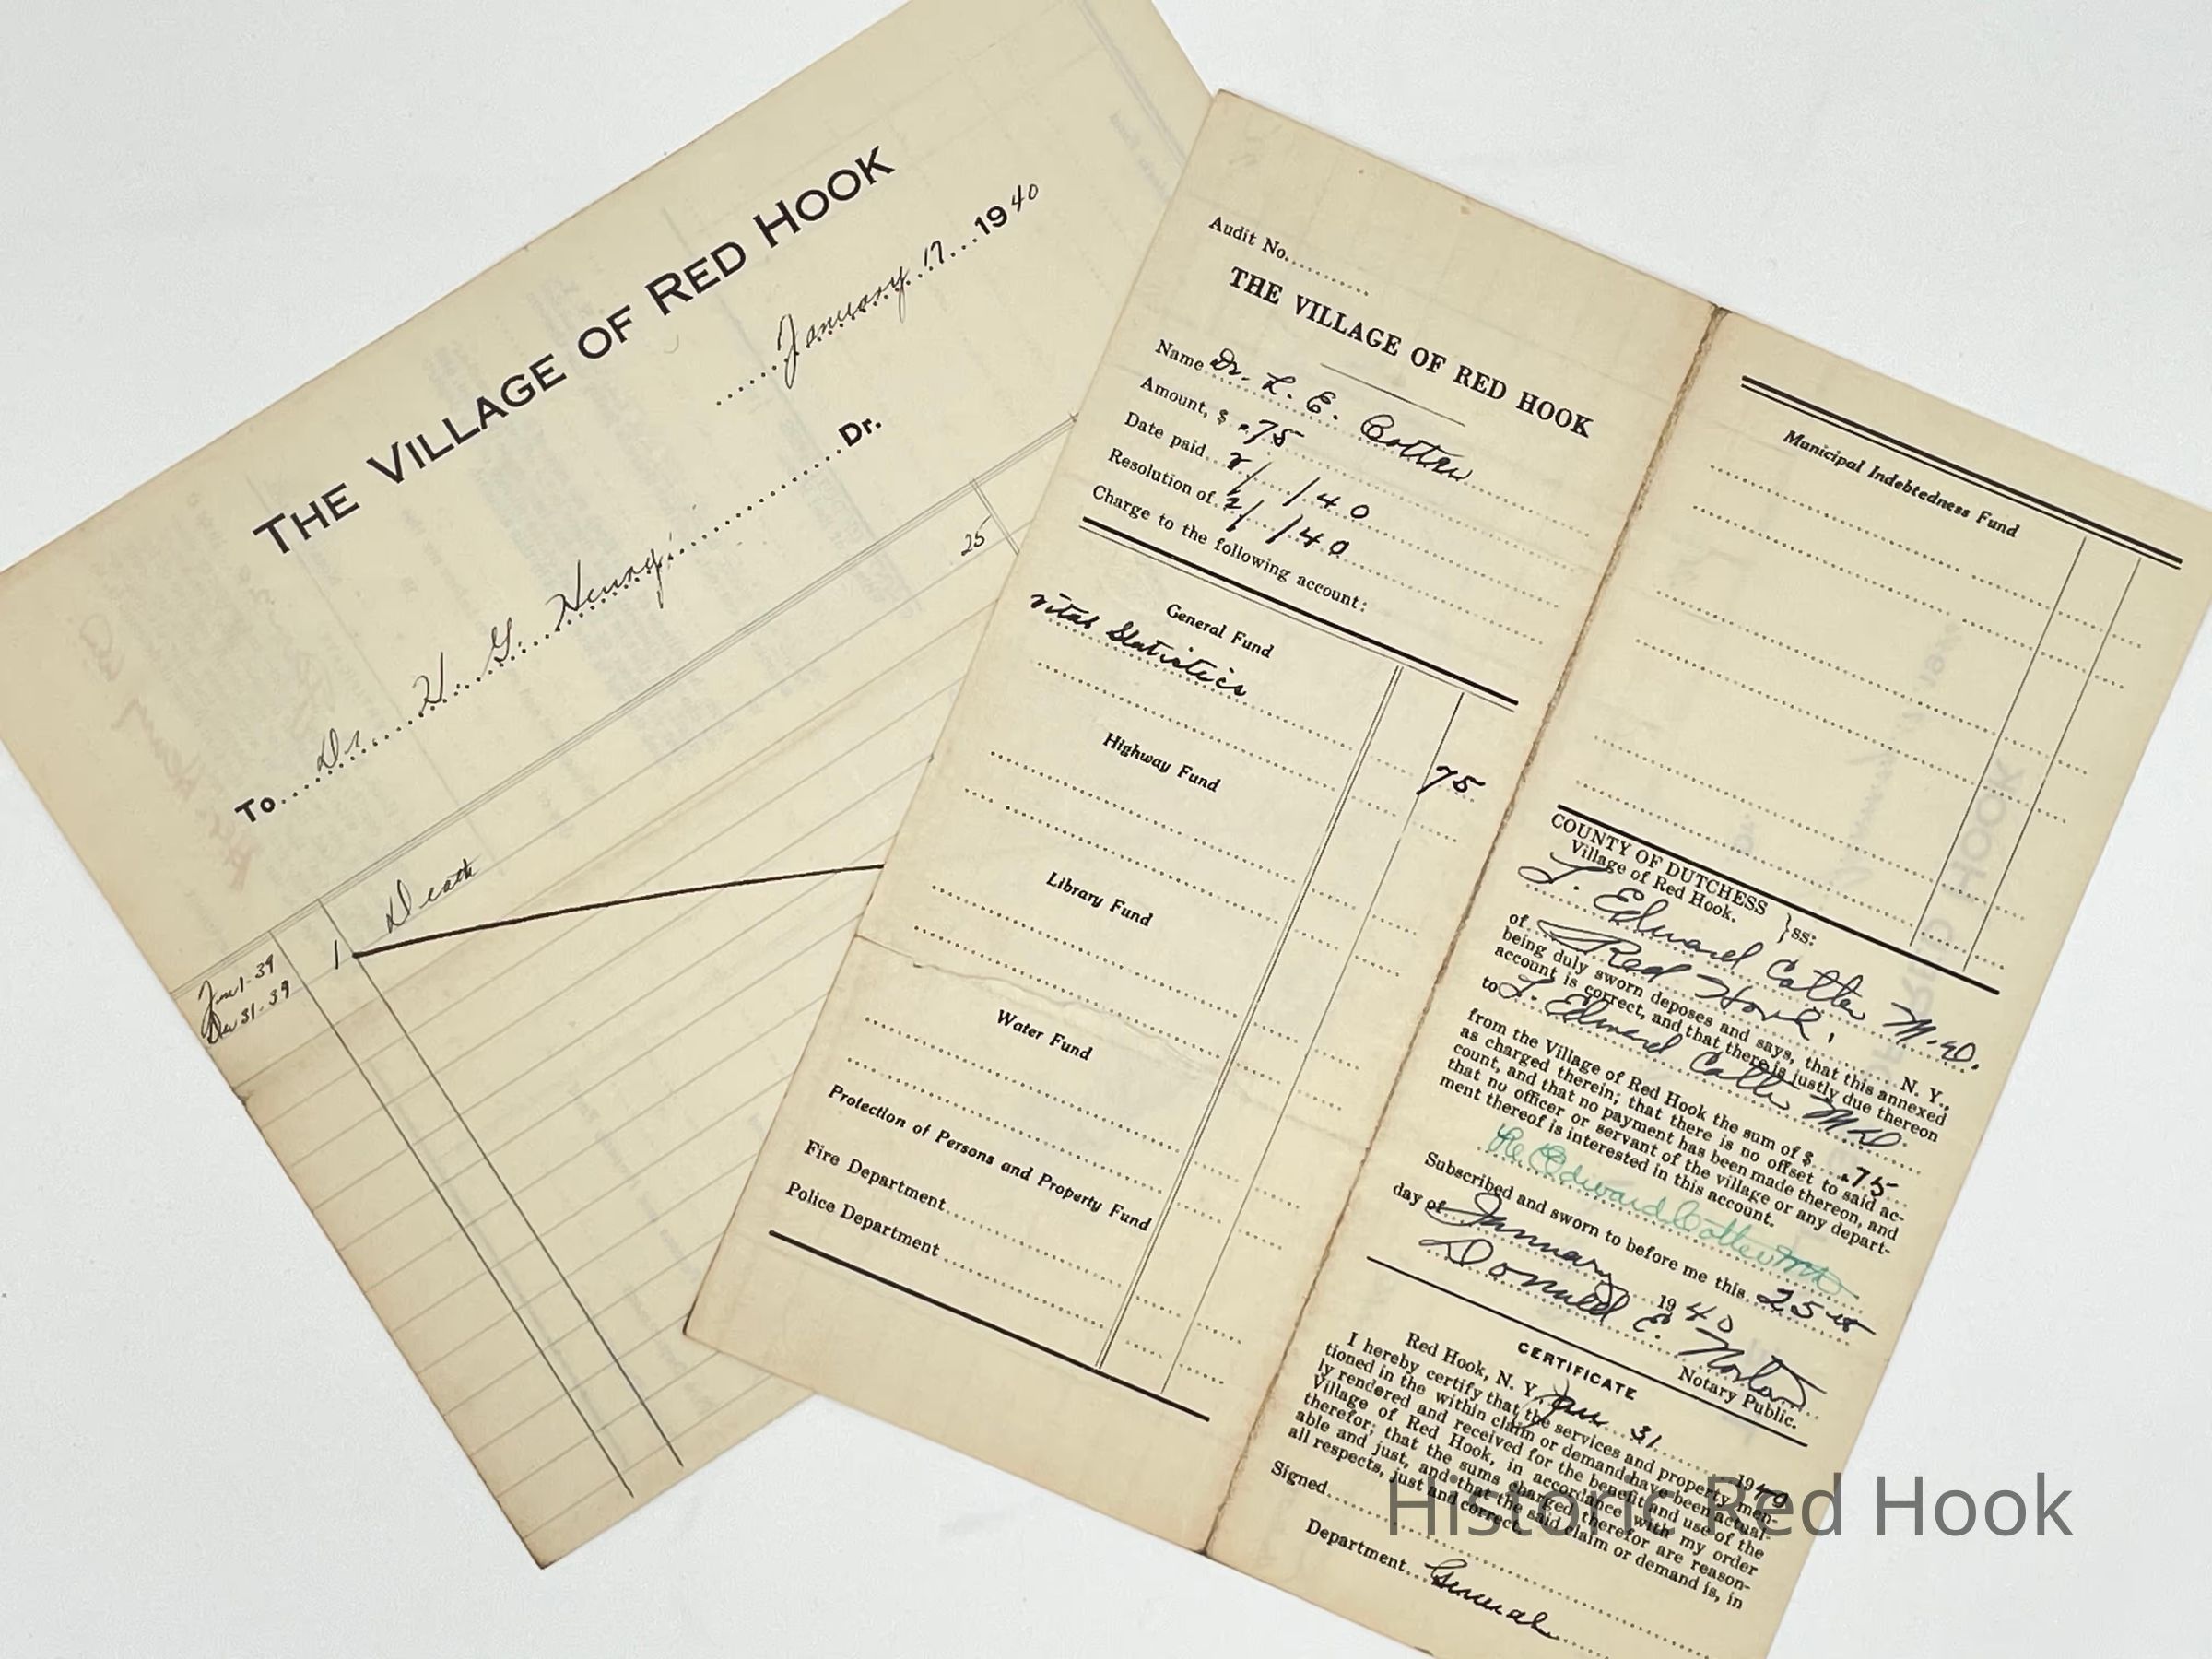 THE VILLAGE OF RED HOOK
January 17 1940
To Dr. H. G. Henry Dr.
25
Jan 1-39
Dec 31-39
1 Death
Audit No.
THE VILLAGE OF RED HOOK
Name Dr. L. E. Cotter
Amount, $ .75
Date paid 2/1/40
Resolution of 2/1/40
Charge to the following account:
General Fund
Vital Statistics
75
Highway Fund
Library Fund
Water Fund
Protection of Persons and Property Fund
Fire Department
Police Department
Municipal Indebtedness Fund
COUNTY OF DUTCHESS
Village of Red Hook. } ss:
L. Edward Cotter M.D.
of Red Hook, N. Y.,
being duly sworn deposes and says, that this annexed
account is correct, and that there is justly due thereon
to L. Edward Cotter M.D.
from the Village of Red Hook the sum of $ .75
as charged therein; that there is no offset to said ac-
count, and that no payment has been made thereon, and
that no officer or servant of the village or any depart-
ment thereof is interested in this account.
Edward Cotter MD
Subscribed and sworn to before me this 25th
day of January 1940
Donald E. Norton
Notary Public.
CERTIFICATE
Red Hook, N. Y. Jan 31 1940
I hereby certify that the services and property men-
tioned in the within claim or demand have been actual-
ly rendered and received for the benefit and use of the
Village of Red Hook, in accordance with my order
therefor; that the sums charged therefor are reason-
able and just, and that the said claim or demand is, in
all respects, just and correct.
Signed
Department General
Historic Red Hook